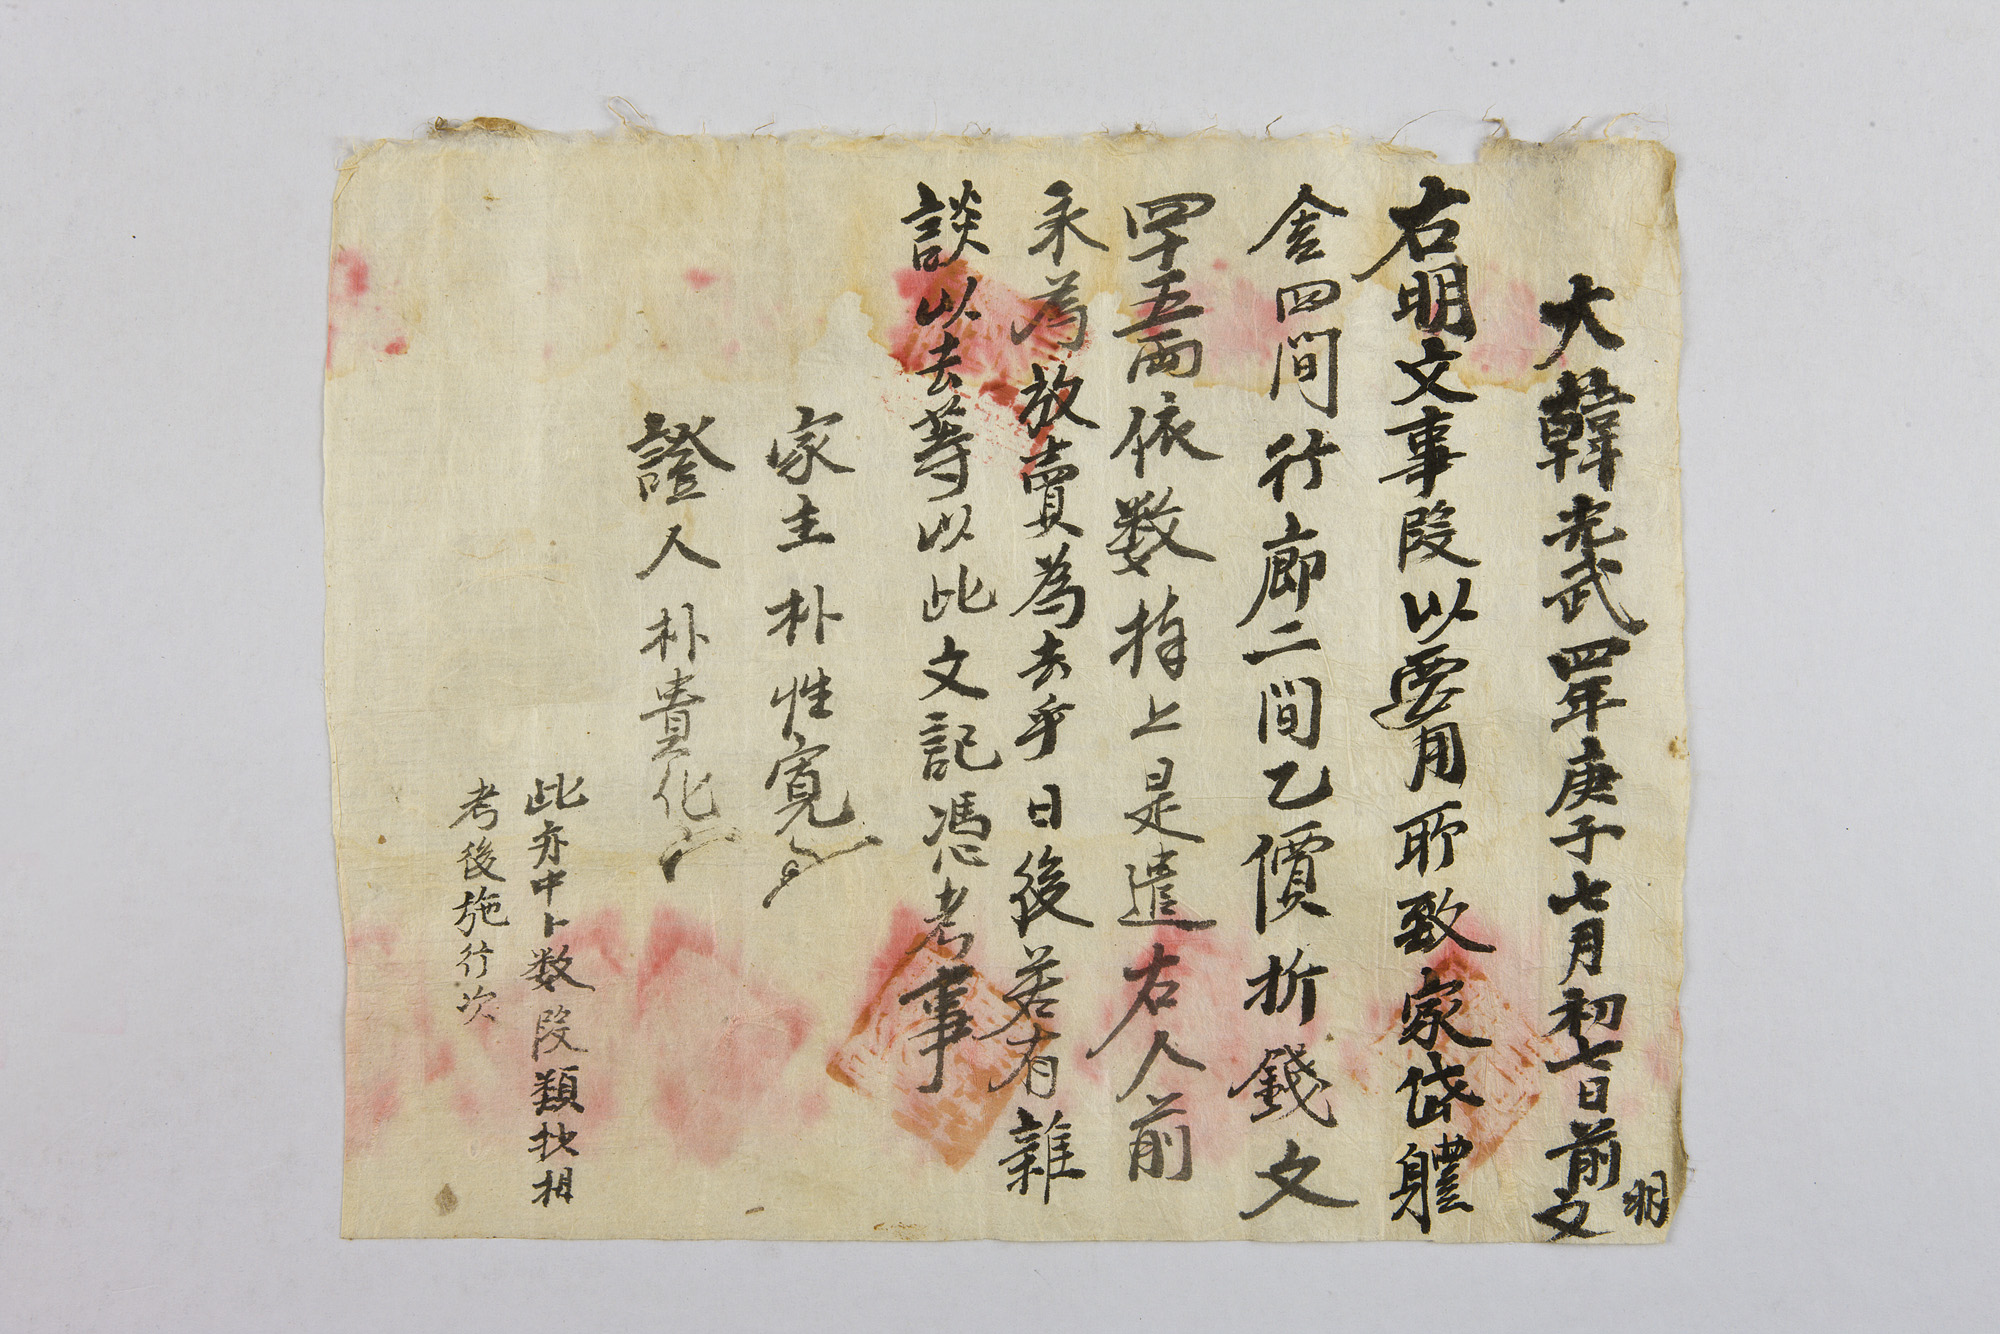 大韓光武四年庚子七月初七日前明文
右明文事段以要用所致家垈體
舍四間行廊二間乙價折錢文
四十五兩依数捧上是遣右人前
永為放賣為去乎日後若有雜
談以去等以此文記憑考事
家主朴性寬
證人朴貴化
此亦中卜数段類抄相
考後施行次